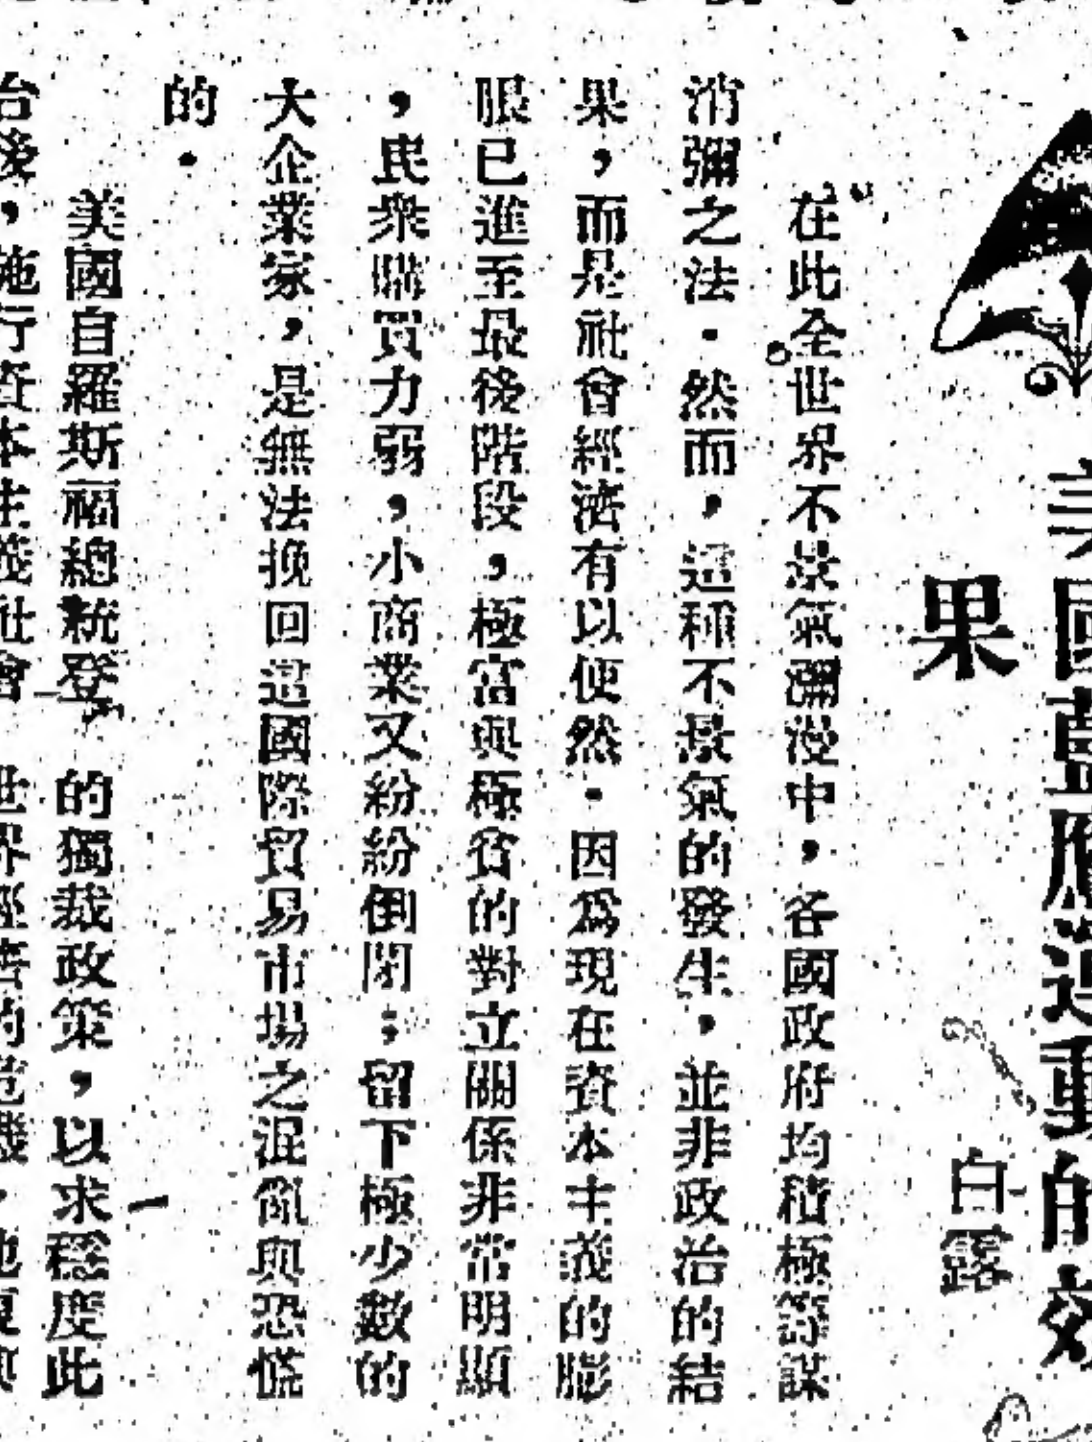 國藍鷹運動的效
果
白露
在此全世界不景氣瀰漫中，各國政府均積極籌謀
消彌之法．然而，這種不景氣的發生，並非政治的結
果，而是社會經濟有以使然．因爲現在資本主義的膨
脹已進至最後階段，極富與極貧的對立關係非常明顯
，民衆購買力弱，小商業又紛紛倒閉；留下極少數的
大企業家，是無法挽回這國際貿易市場之混亂與恐慌
的．
美國自羅斯福總統登 的獨裁政策，以求穩度此
台後，施行資本主義社會 世界經濟的危機，他